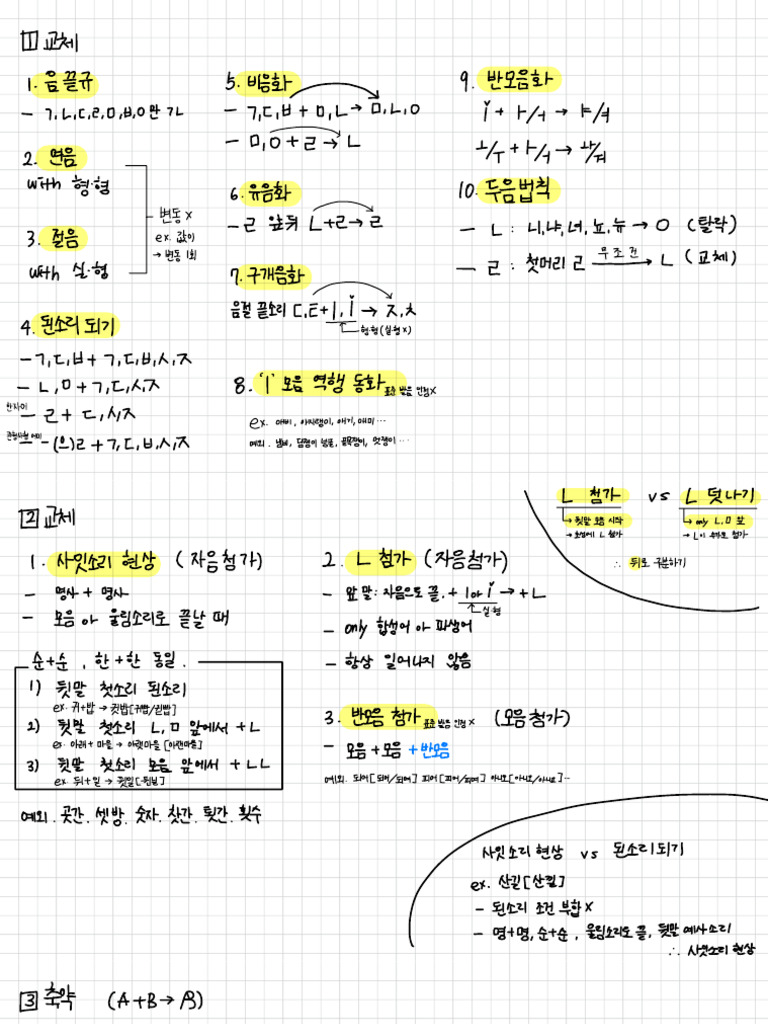 1 교체
1. 음끝규
- ㄱ, ㄴ, ㄷ, ㄹ, ㅁ, ㅂ, ㅇ만 가
2. 연음
with 형·형
3. 절음
with 실·형
변동 X
ex. 값이
→ 변동 1회
4. 된소리되기
- ㄱ, ㄷ, ㅂ + ㄱ, ㄷ, ㅂ, ㅅ, ㅈ
- ㄴ, ㅁ + ㄱ, ㄷ, ㅅ, ㅈ
한자어 - ㄹ + ㄷ, ㅅ, ㅈ
관형사형 어미 - (으)ㄹ + ㄱ, ㄷ, ㅂ, ㅅ, ㅈ
5. 비음화
- ㄱ, ㄷ, ㅂ + ㅁ, ㄴ → ㅁ, ㄴ, ㅇ
- ㅁ, ㅇ + ㄹ → ㄴ
6. 유음화
- ㄹ 앞뒤 ㄴ+ㄹ → ㄹ
7. 구개음화
음절 끝소리 ㄷ, ㅌ + ㅣ, ǐ → ㅈ, ㅊ
형·형 (실·형 X)
8. 'ㅣ' 모음 역행 동화 표준 발음 인정X
ex. 애비, 아지랭이, 애기, 에미 …
예외. 냄비, 담쟁이 덩굴, 골목쟁이, 멋쟁이 …
9. 반모음화
ǐ + ㅏ/ㅓ → ㅑ/ㅕ
ㅗ/ㅜ + ㅏ/ㅓ → ㅘ/ㅝ
10. 두음법칙
- ㄴ : 니, 냐, 녀, 뇨, 뉴 → ㅇ (탈락)
- ㄹ : 첫머리 ㄹ 무조건 → ㄴ (교체)
ㄴ 첨가 vs ㄴ 덧나기
→ 뒷말 모음 시작 → only ㄴ, ㅁ 앞
→ 초성에 ㄴ 첨가 → ㄴ이 추가로 첨가
∴ 뒤로 구분하기
2 교체
1. 사잇소리 현상 (자음첨가)
- 명사 + 명사
- 모음 or 울림소리로 끝날 때
순+순, 한+한 동일.
1) 뒷말 첫소리 된소리
ex. 귀+밥 → 귓밥[귀빱/귇빱]
2) 뒷말 첫소리 ㄴ, ㅁ 앞에서 +ㄴ
ex. 아래+마을 → 아랫마을[아랜마을]
3) 뒷말 첫소리 모음 앞에서 +ㄴㄴ
ex. 뒤+일 → 뒷일[뒨닐]
예외. 곳간, 셋방, 숫자, 찻간, 툇간, 횟수
2. ㄴ 첨가 (자음첨가)
- 앞말: 자음으로 끝. + ㅣ or ǐ → +ㄴ
실·형
- only 합성어 or 파생어
- 항상 일어나지 않음
3. 반모음 첨가 표준 발음 인정X (모음첨가)
- 모음+모음 +반모음
예외. 되어[되어/되여] 피어[피어/피여] 아니오[아니오/아니요]…
사잇소리 현상 vs 된소리되기
ex. 산길[산낄]
- 된소리 조건 부합X
- 명+명, 순+순, 울림소리로 끝, 뒷말 예사소리
∴ 사잇소리 현상
3 축약 (A+B→AB)